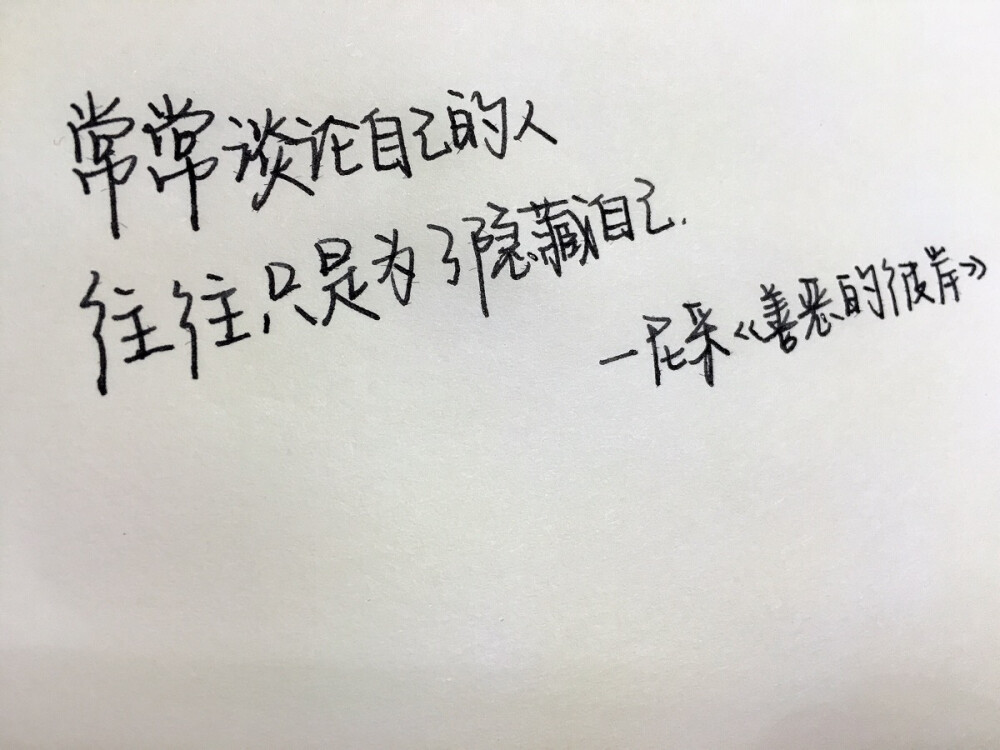 常常谈论自己的人
往往只是为了隐藏自己.
—尼采《善恶的彼岸》